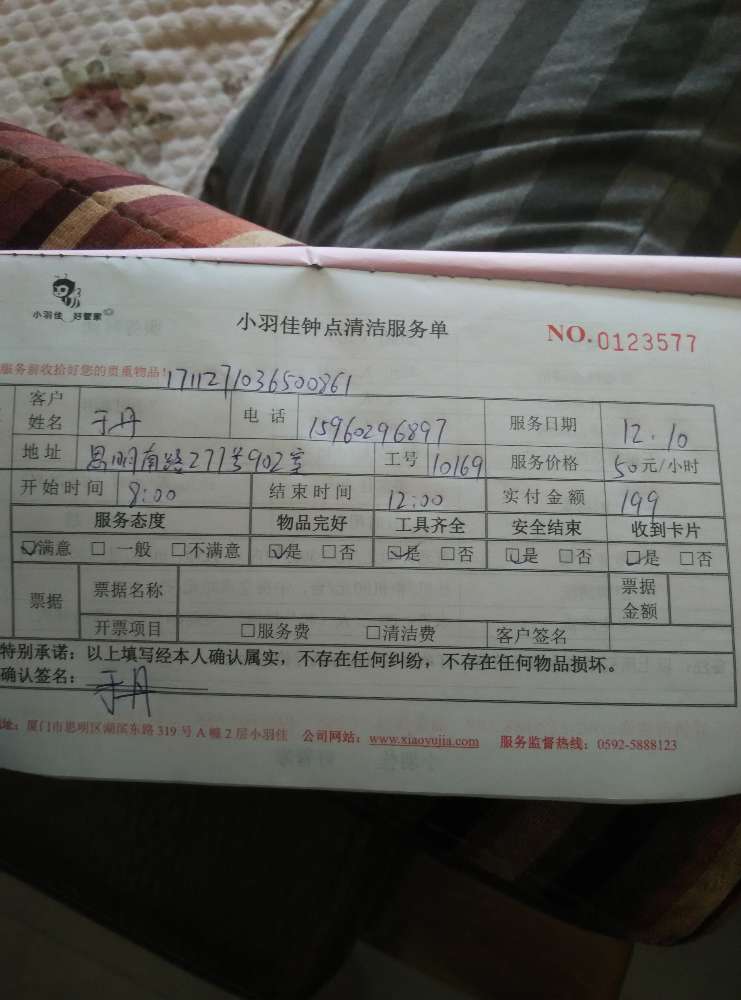 小羽佳 好管家
小羽佳钟点清洁服务单
NO.0123577
服务前收拾好您的贵重物品!
1711271036500861
客户姓名 于丹 电话 15960296897 服务日期 12.10
地址 思明南路277号902室 工号 10169 服务价格 50元/小时
开始时间 8:00 结束时间 12:00 实付金额 199
服务态度 物品完好 工具齐全 安全结束 收到卡片
☑满意 □一般 □不满意 ☑是 □否 ☑是 □否 ☑是 □否 ☑是 □否
票据 票据名称 票据金额
开票项目 □服务费 □清洁费 客户签名
特别承诺：以上填写经本人确认属实，不存在任何纠纷，不存在任何物品损坏。
确认签名： 于丹
地址：厦门市思明区湖滨东路319号A幢2层小羽佳 公司网站：www.xiaoyujia.com 服务监督热线：0592-5888123